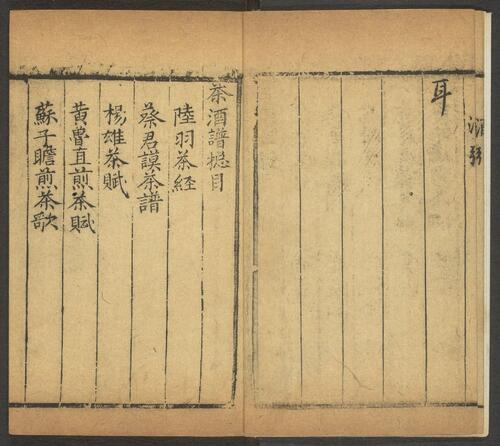 耳
茶酒譜捴目
陸羽茶経
蔡君謨茶譜
楊雄茶賦
黄魯直煎茶賦
蘇子瞻煎茶歌